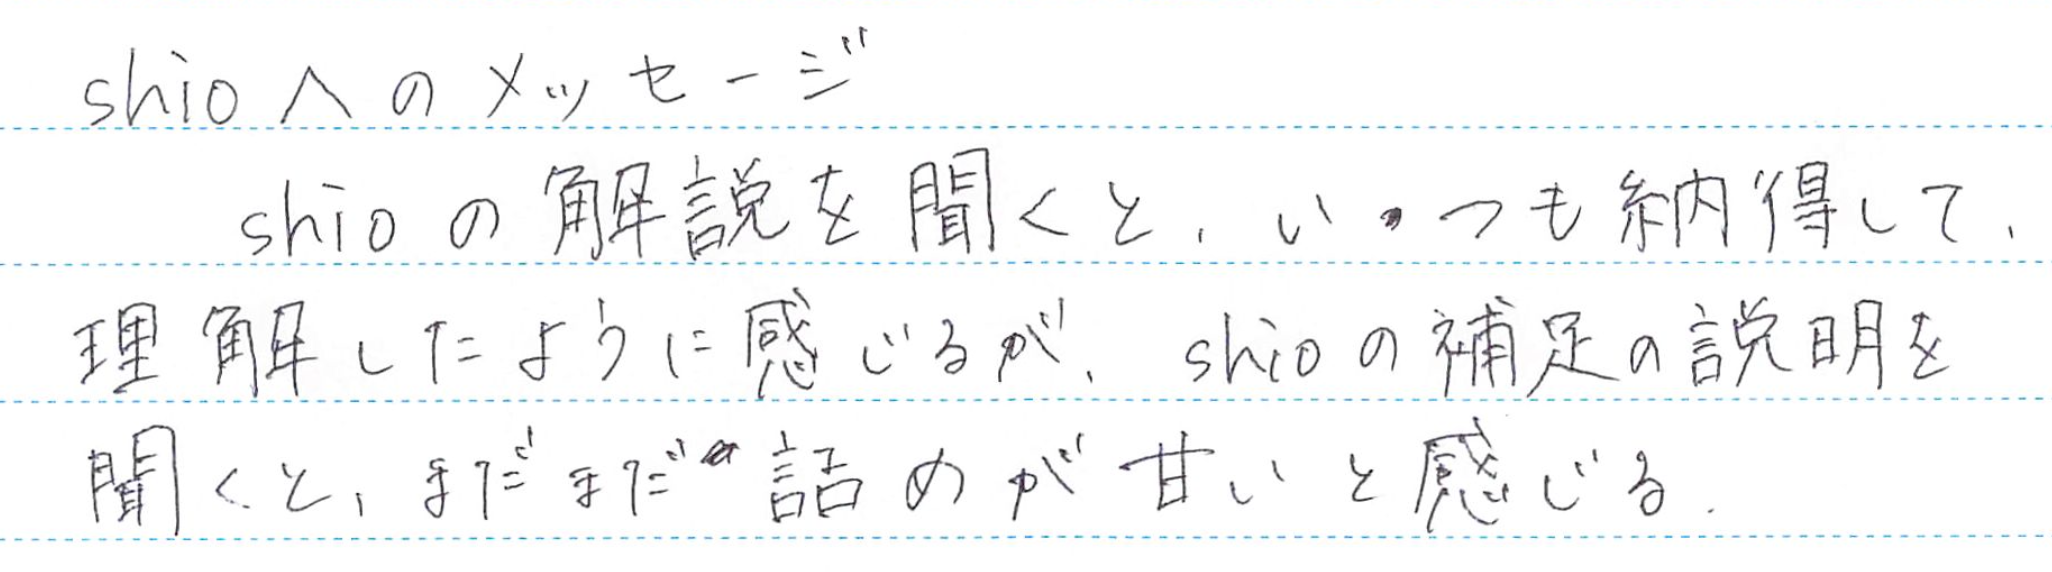 shioへのメッセージ
shioの解説を聞くと、いつも納得して、
理解したように感じるが、shioの補足の説明を
聞くと、まだまだ詰めが甘いと感じる.